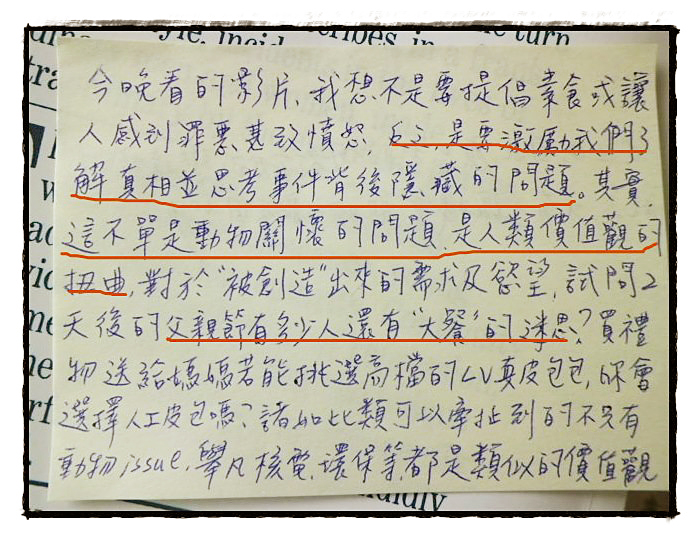 今晚看的影片,我想不是要提倡素食或讓
人感到罪惡甚致憤怒,反之,是要激勵我們了
解真相並思考事件背後隱藏的問題。其實,
這不單是動物關懷的問題,是人類價值觀的
扭曲,對於"被創造"出來的需求及慾望,試問2
天後的父親節有多少人還有"大餐"的迷思?買禮
物送給媽媽若能挑選高檔的LV真皮包包,你會
選擇人工皮包嗎?諸如此類可以牽扯到的不只有
動物issue,舉凡核電、環保等,都是類似的價值觀